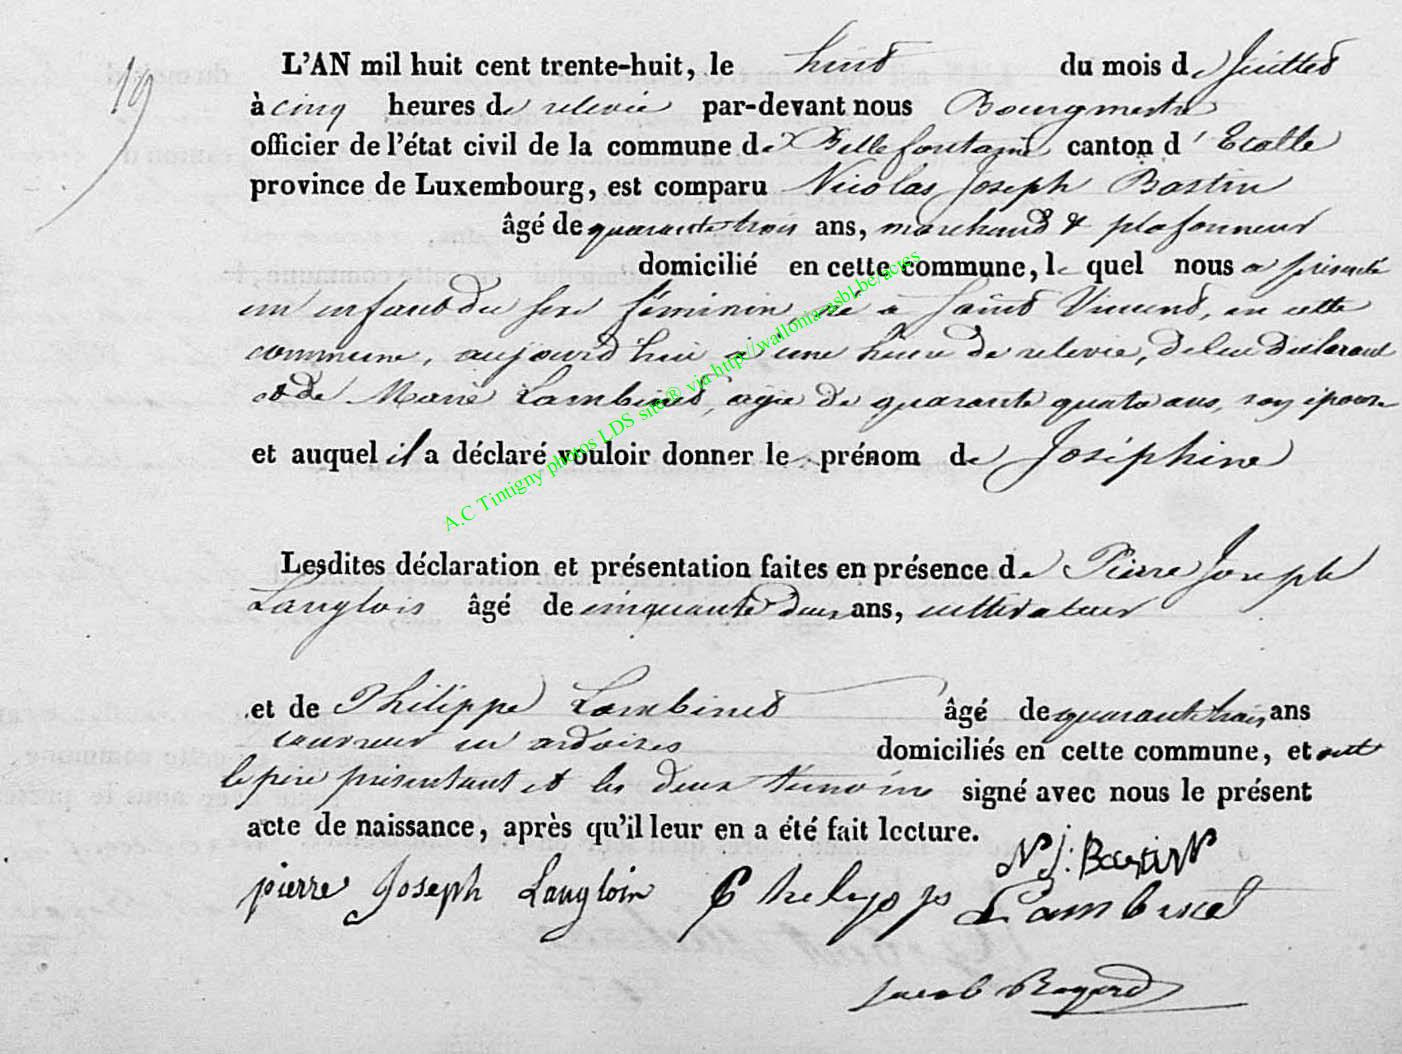 19
L'AN mil huit cent trente-huit, le huit du mois de Juillet
à cinq heures de relevée par-devant nous Bourgmestre
officier de l'état civil de la commune de Bellefontaine canton d' Etalle
province de Luxembourg, est comparu Nicolas Joseph Bastin
âgé de quarante trois ans, marchand & plafonneur
domicilié en cette commune, le quel nous a présenté
un enfant du sexe féminin, né à Saint Vincent, en cette
commune, aujourd'hui à une heure de relevée, de lui déclarant
et de Marie Lambinet, âgée de quarante quatre ans, son épouse
et auquel il a déclaré vouloir donner le prénom de Joséphine
Lesdites déclaration et présentation faites en présence de Pierre Joseph
Langlois âgé de cinquante deux ans, cultivateur
et de Philippe Lambinet âgé de quarante trois ans
couvreur en ardoises domiciliés en cette commune, et ont
le père présentant et les deux témoins signé avec nous le présent
acte de naissance, après qu'il leur en a été fait lecture.
N J: Bastin
pierre Joseph Langloin Lambinet
Jacob
A.C Tintigny photos LDS site® via http://wallonia-asbl.be/actes